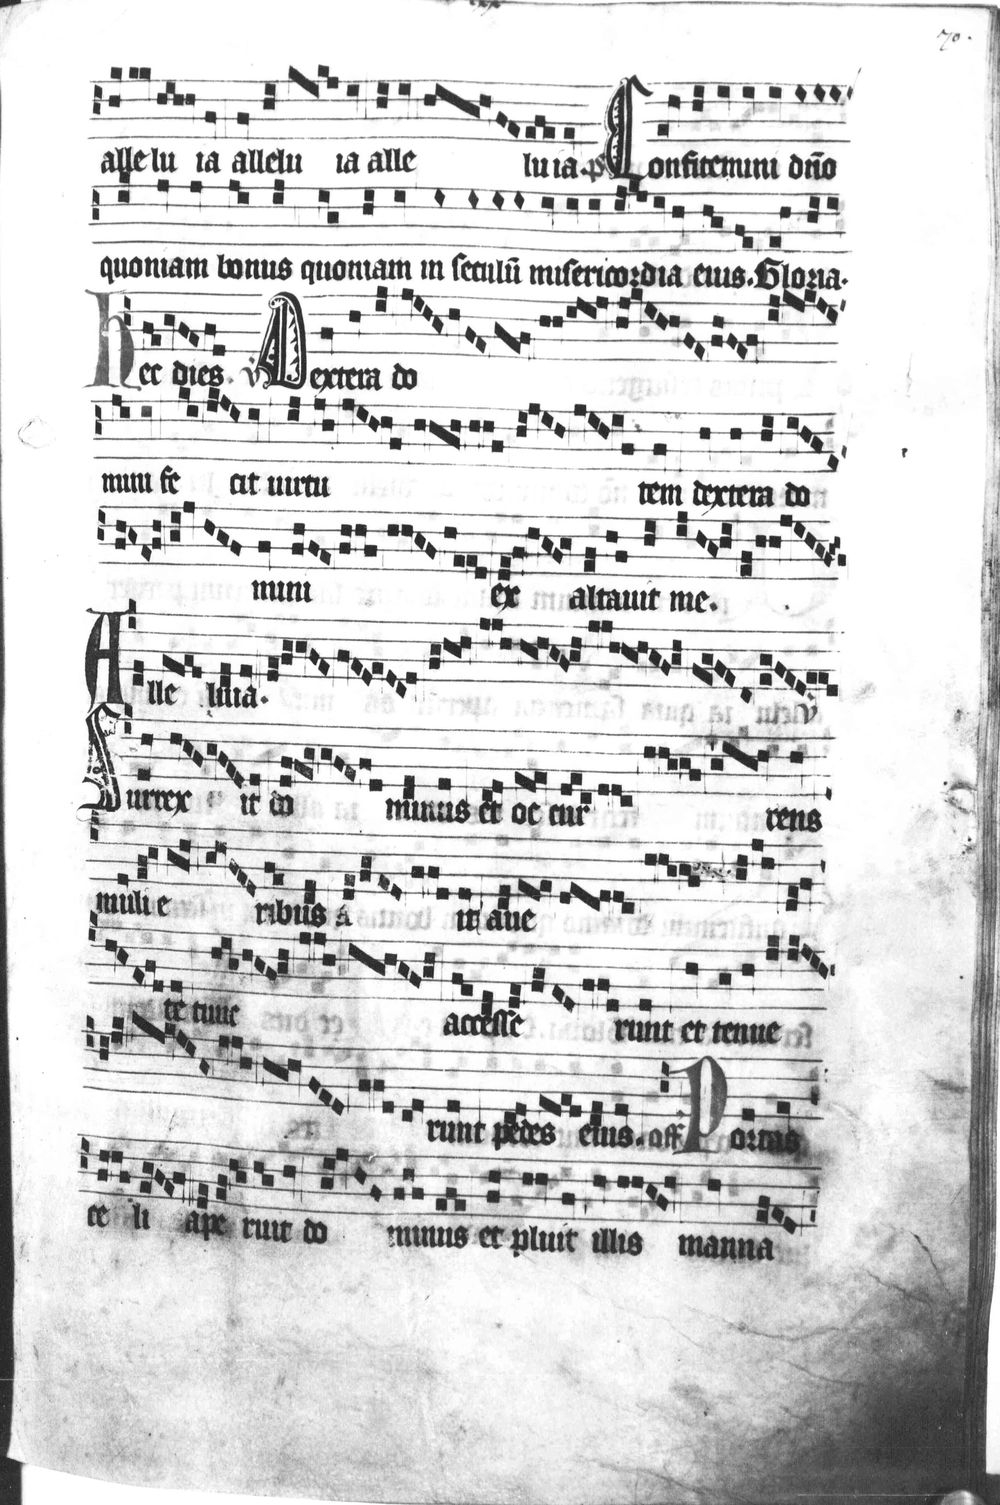 70.
alle lu ia allelu ia alle lu ia. ps Confitemini dño
quoniam bonus quoniam in seculũ misericordia eius. Gloria.
hec dies. v Dextera do
mini fe cit uirtu tem dextera do
mini ex altauit me.
Alle luia. v
Surrex it do minus et oc cur rens
mulie ribus a it aue
te tunc accesse runt et tenue
runt pedes eius. off. Portas
ce li ape ruit do minus et pluit illis manna